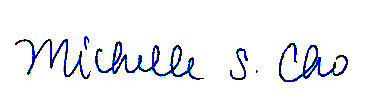 Michelle S. Cho